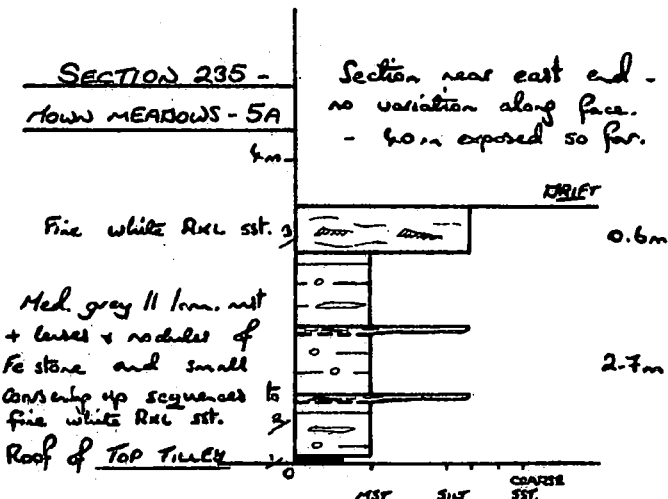 SECTION 235 -
MOWN MEADOWS - 5A
Section near east end -
no variation along face.
- 40m exposed so far.
4m
DRIFT
Fine white RXL sst. 3
0.6m
Med. grey // lam. mst
+ lenses & nodules of
Fe stone and small
coarsening up sequences to
fine white RXL sst. 2
2.7m
Roof of TOP TILLEY 1
0
MST SILT COARSE
SST.